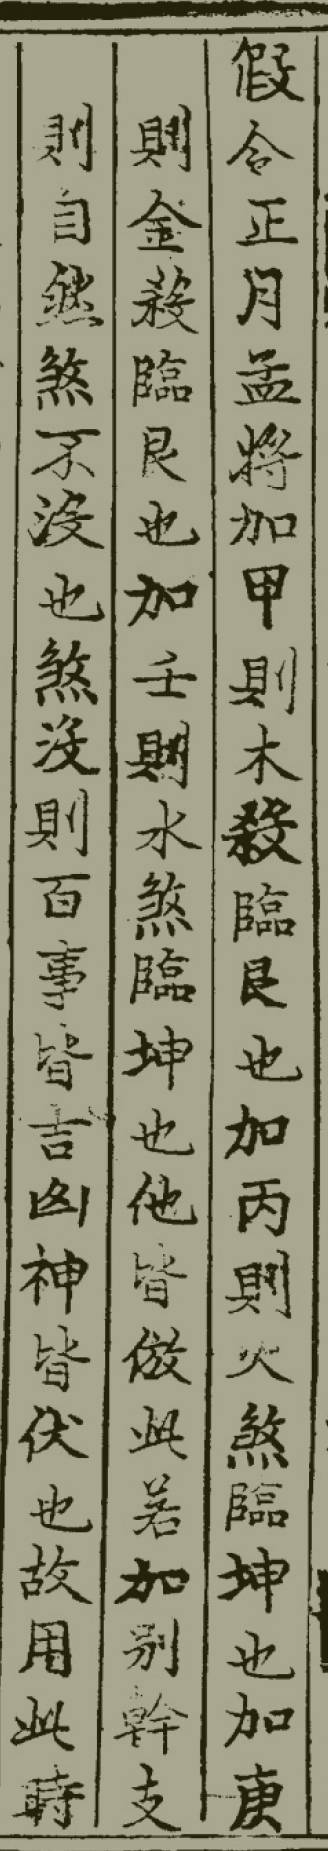 假令正月孟將加甲則木殺臨艮也加丙則火煞臨坤也加庚
則金殺臨艮也加壬則水煞臨坤也他皆倣此若加别幹支
則自然煞不沒也煞沒則百事皆吉凶神皆伏也故用此時